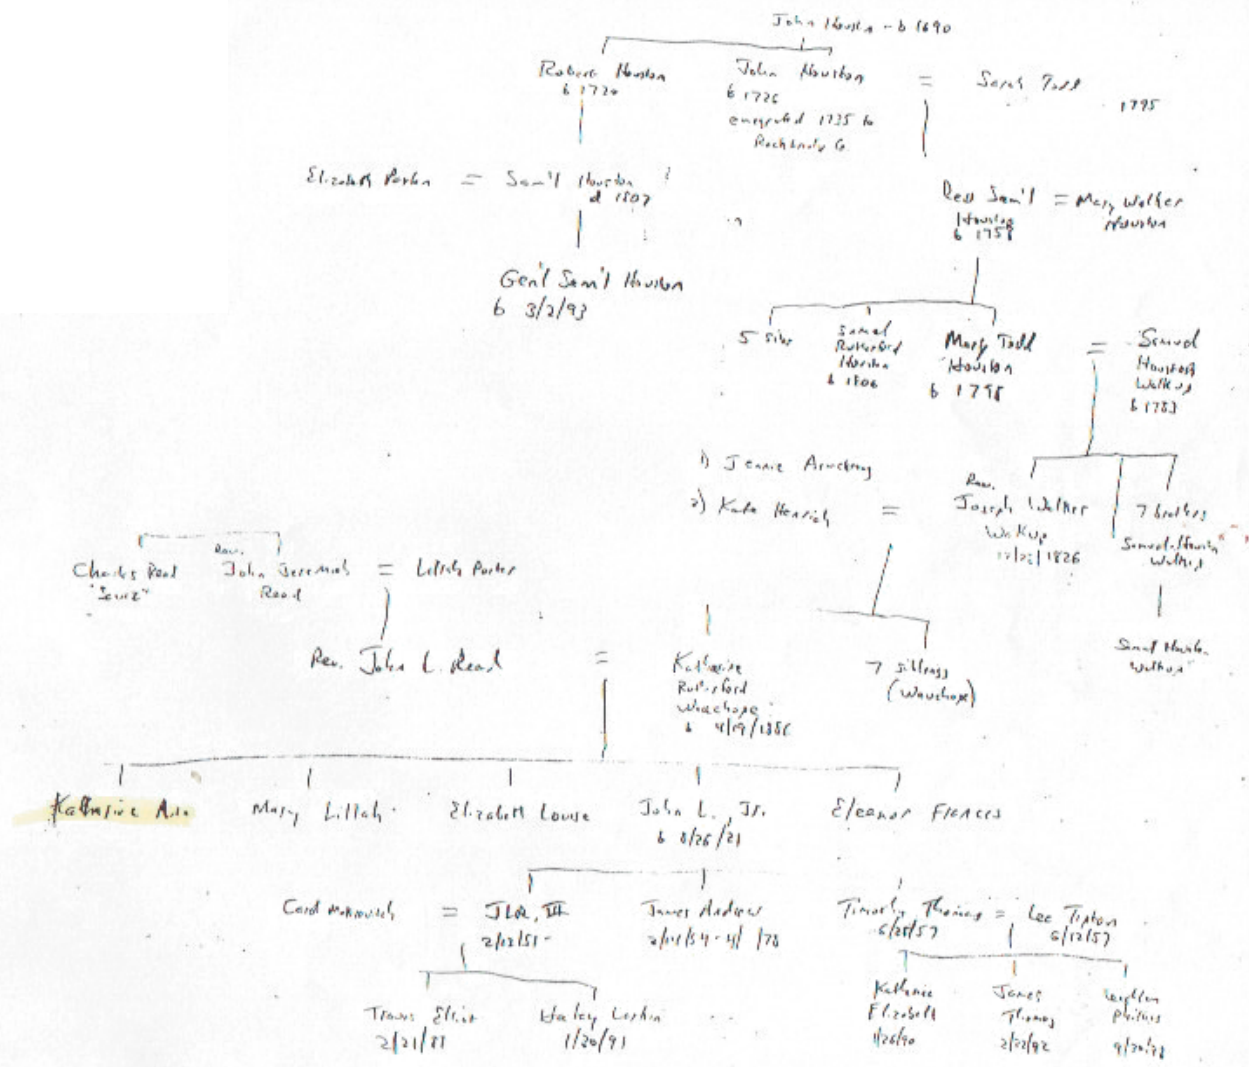 John Houston - b 1690
Robert Houston
b 1720
John Houston
b 1726
emigrated 1735 to
=
Sarah Todd
1795
Elizabeth Paxton = Sam'l Houston
d 1807
Rev Sam'l
Houston
b 1758
= Mary Walker
Houston
Gen'l Sam'l Houston
b 3/2/93
5 sibs
Samuel
Rutherford
Houston
b 1806
Mary Todd
Houston
b 1798
=
Samuel
Houston
Walkup
b 1783
1) Jennie Armstrong
2) Kate Henrich
=
Rev.
Joseph Walker
Walkup
1826
7 brothers
Samuel Houston
Walkup
Samuel Houston
Walkup
Charles Read
Rev.
John Jeremiah
Read
= Lillah Porter
Rev. John L. Read
=
Katharine
Rutherford
Wauchope
b 4/19/1886
7 siblings
(Wauchope)
Katharine Ann
Mary Lillah
Elizabeth Louise
John L., Jr.
b 8/26/21
Eleanor Frances
Carol
= JLR, III
2/12/51-
James Andrew
2/14/54 - 4/ /78
Timothy Thomas
6/28/57
= Lee Tipton
6/12/57
Travis Elliot
2/21/81
Haley
1/20/91
Katharine
Elizabeth
1/26/90
James
Thomas
2/22/92
Phillips